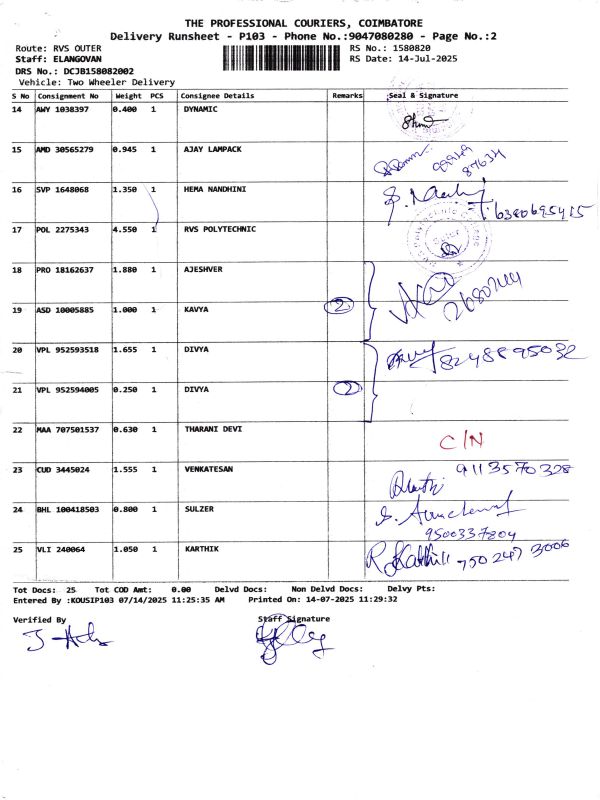 THE PROFESSIONAL COURIERS, COIMBATORE
Delivery Runsheet - P103 - Phone No.:9047080280 - Page No.:2
Route: RVS OUTER
RS No.: 1580820
Staff: ELANGOVAN
RS Date: 14-Jul-2025
DRS No.: DCJB158082002
Vehicle: Two Wheeler Delivery
S No Consignment No Weight PCS Consignee Details Remarks Seal & Signature
14 AWY 1038397 0.400 1 DYNAMIC
15 AMD 30565279 0.945 1 AJAY LAMPACK
16 SVP 1648068 1.350 1 HEMA NANDHINI
17 POL 2275343 4.550 1 RVS POLYTECHNIC
18 PRO 18162637 1.880 1 AJESHVER
19 ASD 10005885 1.000 1 KAVYA 2
20 VPL 952593518 1.655 1 DIVYA
21 VPL 952594005 0.250 1 DIVYA 2
22 MAA 707501537 0.630 1 THARANI DEVI C/N
23 CUD 3445024 1.555 1 VENKATESAN 9113570328
24 BHL 100418503 0.800 1 SULZER
9500337804
25 VLI 240064 1.050 1 KARTHIK 750 247 3006
Tot Docs: 25 Tot COD Amt: 0.00 Delvd Docs: Non Delvd Docs: Delvy Pts:
Entered By :KOUSIP103 07/14/2025 11:25:35 AM Printed On: 14-07-2025 11:29:32
Verified By Staff Signature